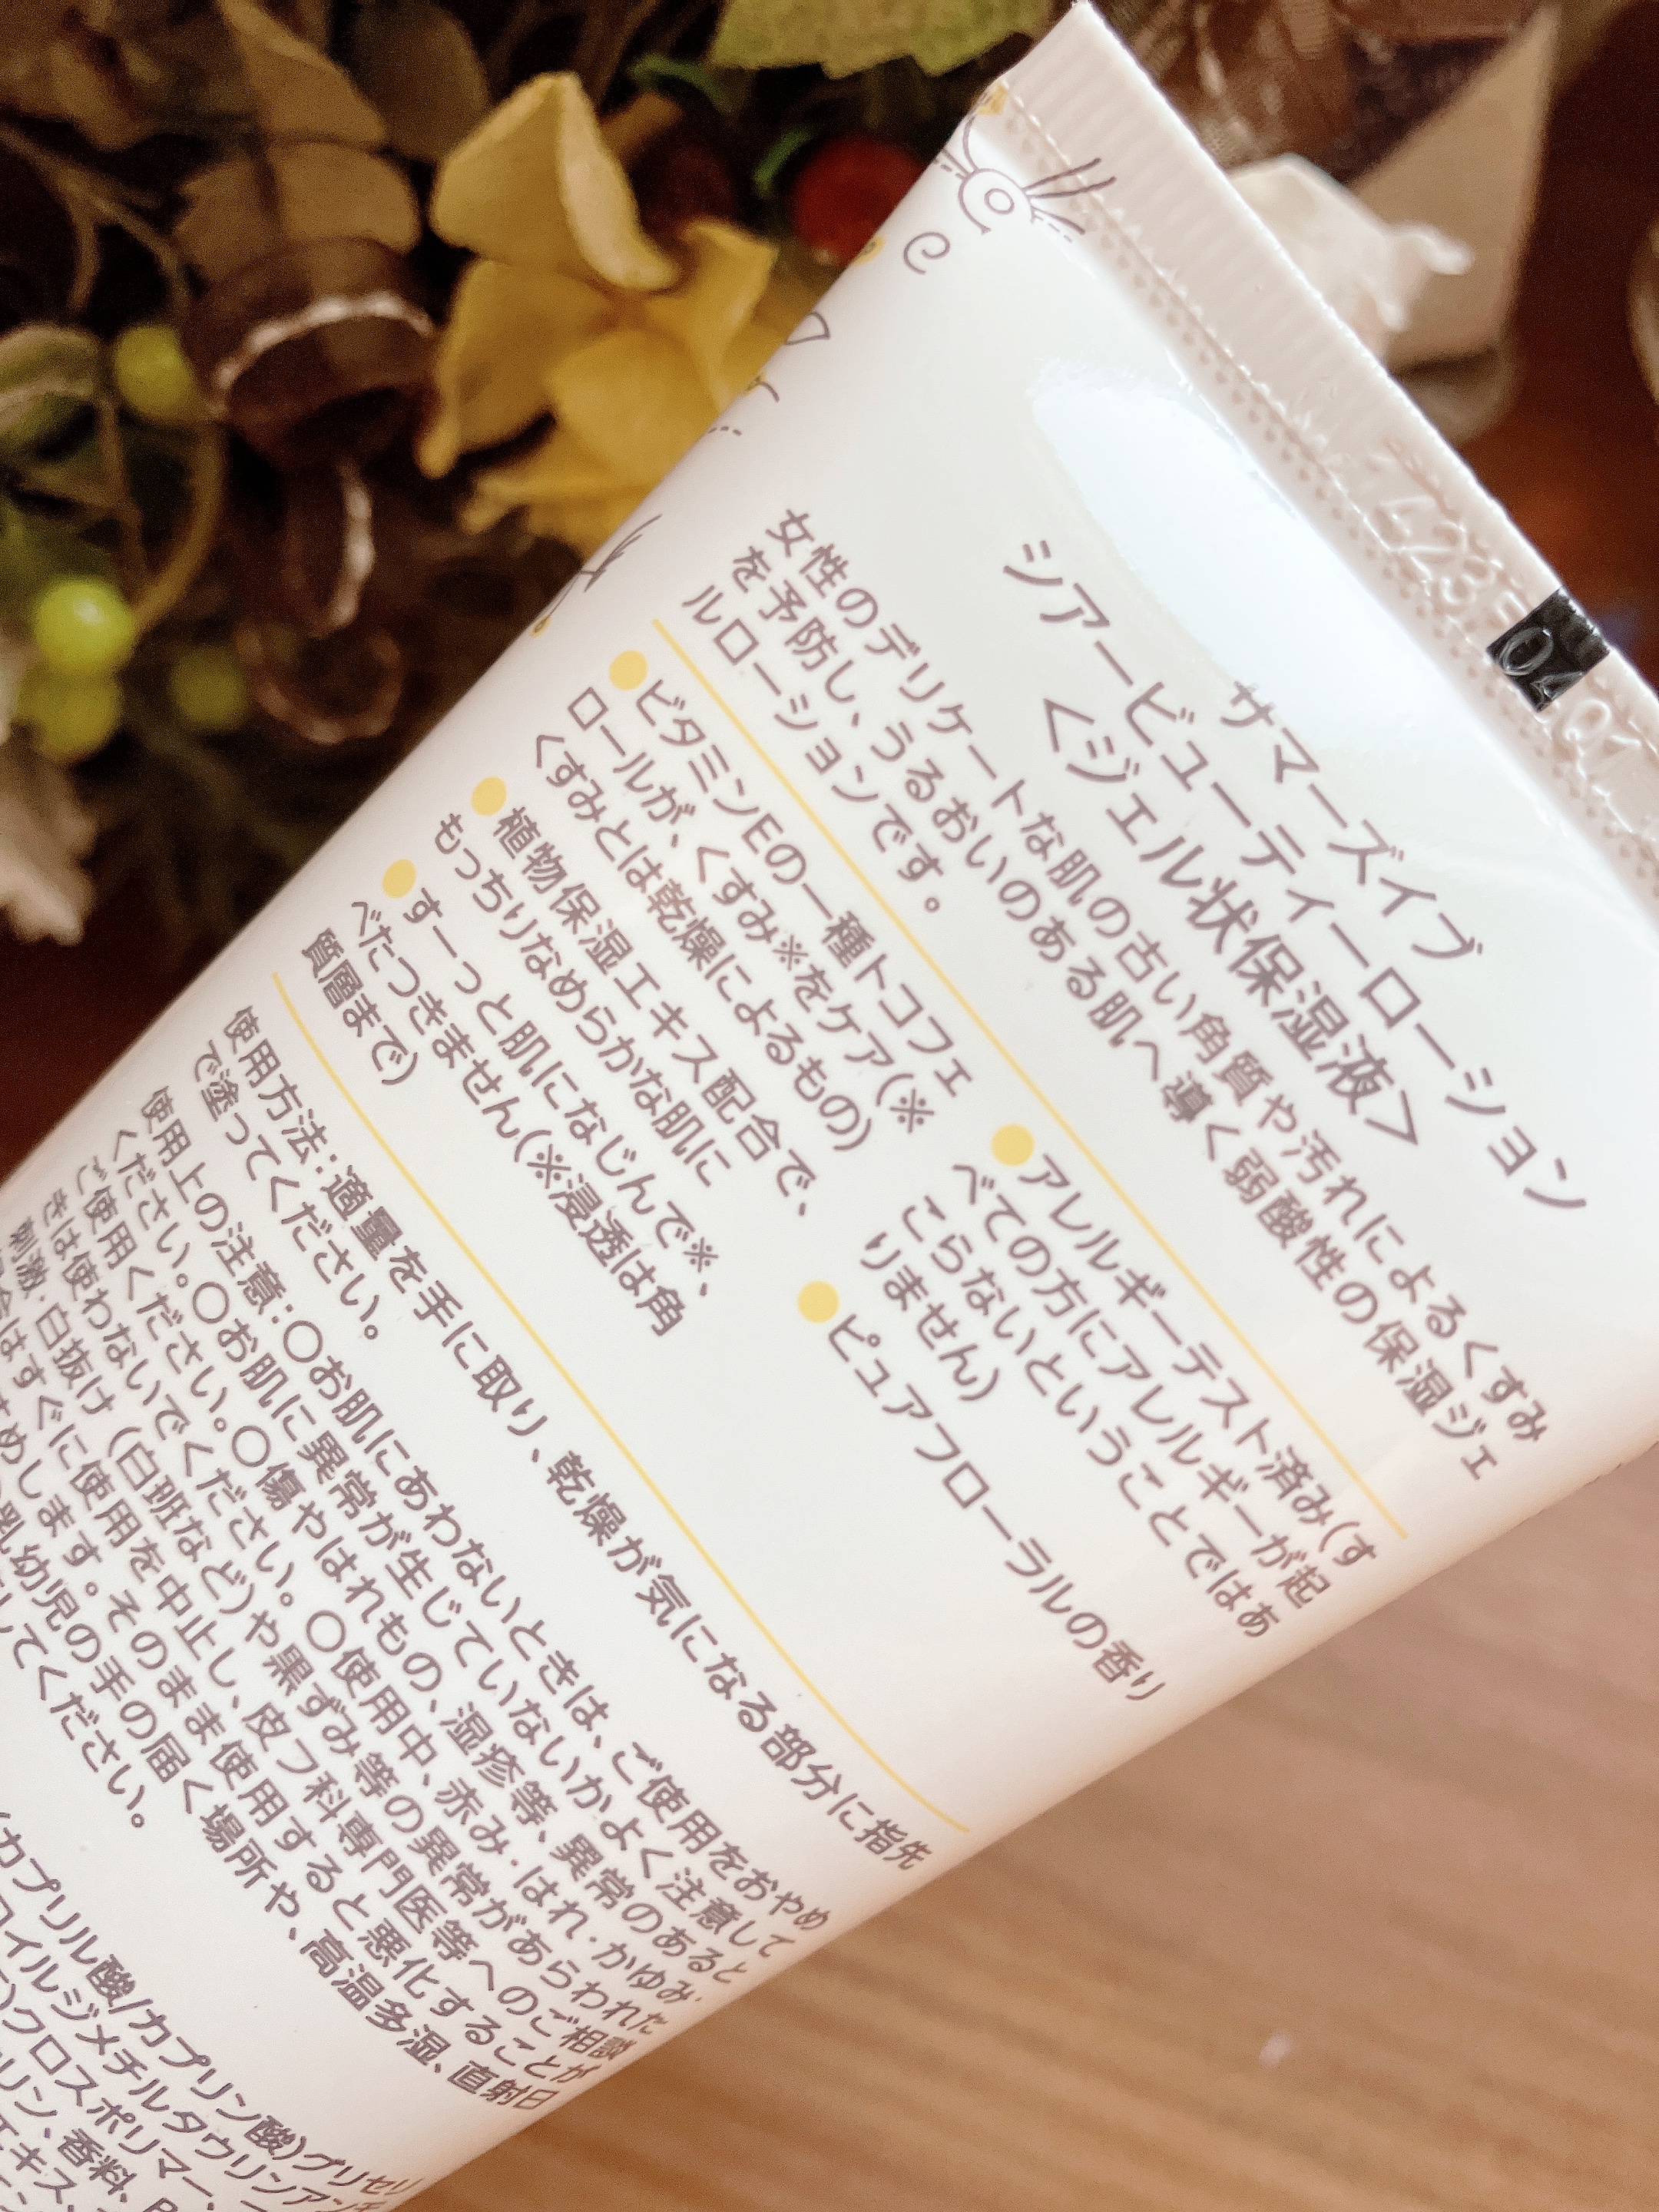 サマーズイブ
シアービューティーローション
<ジェル状保湿液>
女性のデリケートな肌の古い角質や汚れによるくすみ
を予防し、うるおいのある肌へ導く弱酸性の保湿ジェ
ルローションです。
●ビタミンEの一種トコフェ
ロールが、くすみ※をケア(※
くすみとは乾燥によるもの)
●植物保湿エキス配合で、
もっちりなめらかな肌に
●すーっと肌になじんで※、
べたつきません(※浸透は角
質層まで)
●アレルギーテスト済み(す
べての方にアレルギーが起
こらないということではあ
りません)
●ピュアフローラルの香り
使用方法:適量を手に取り、乾燥が気になる部分に指先
で塗ってください。
使用上の注意:〇お肌にあわないときは、ご使用をおやめ
ください。〇お肌に異常が生じていないかよく注意して
ご使用ください。〇傷やはれもの、湿疹等、異常のあると
きは使わないでください。〇使用中、赤み・はれ・かゆみ・
刺激・白抜け(白斑など)や黒ずみ等の異常があらわれた
はすぐに使用を中止し、皮フ科専門医等へのご相談
すめします。そのまま使用すると悪化することが
乳幼児の手の届く場所や、高温多湿、直射日
してください。
カプリル酸/カプリン酸)グリセリ
ロイルジメチルタウリンアン
)クロスポリマー、
リン、香料、
エキス、